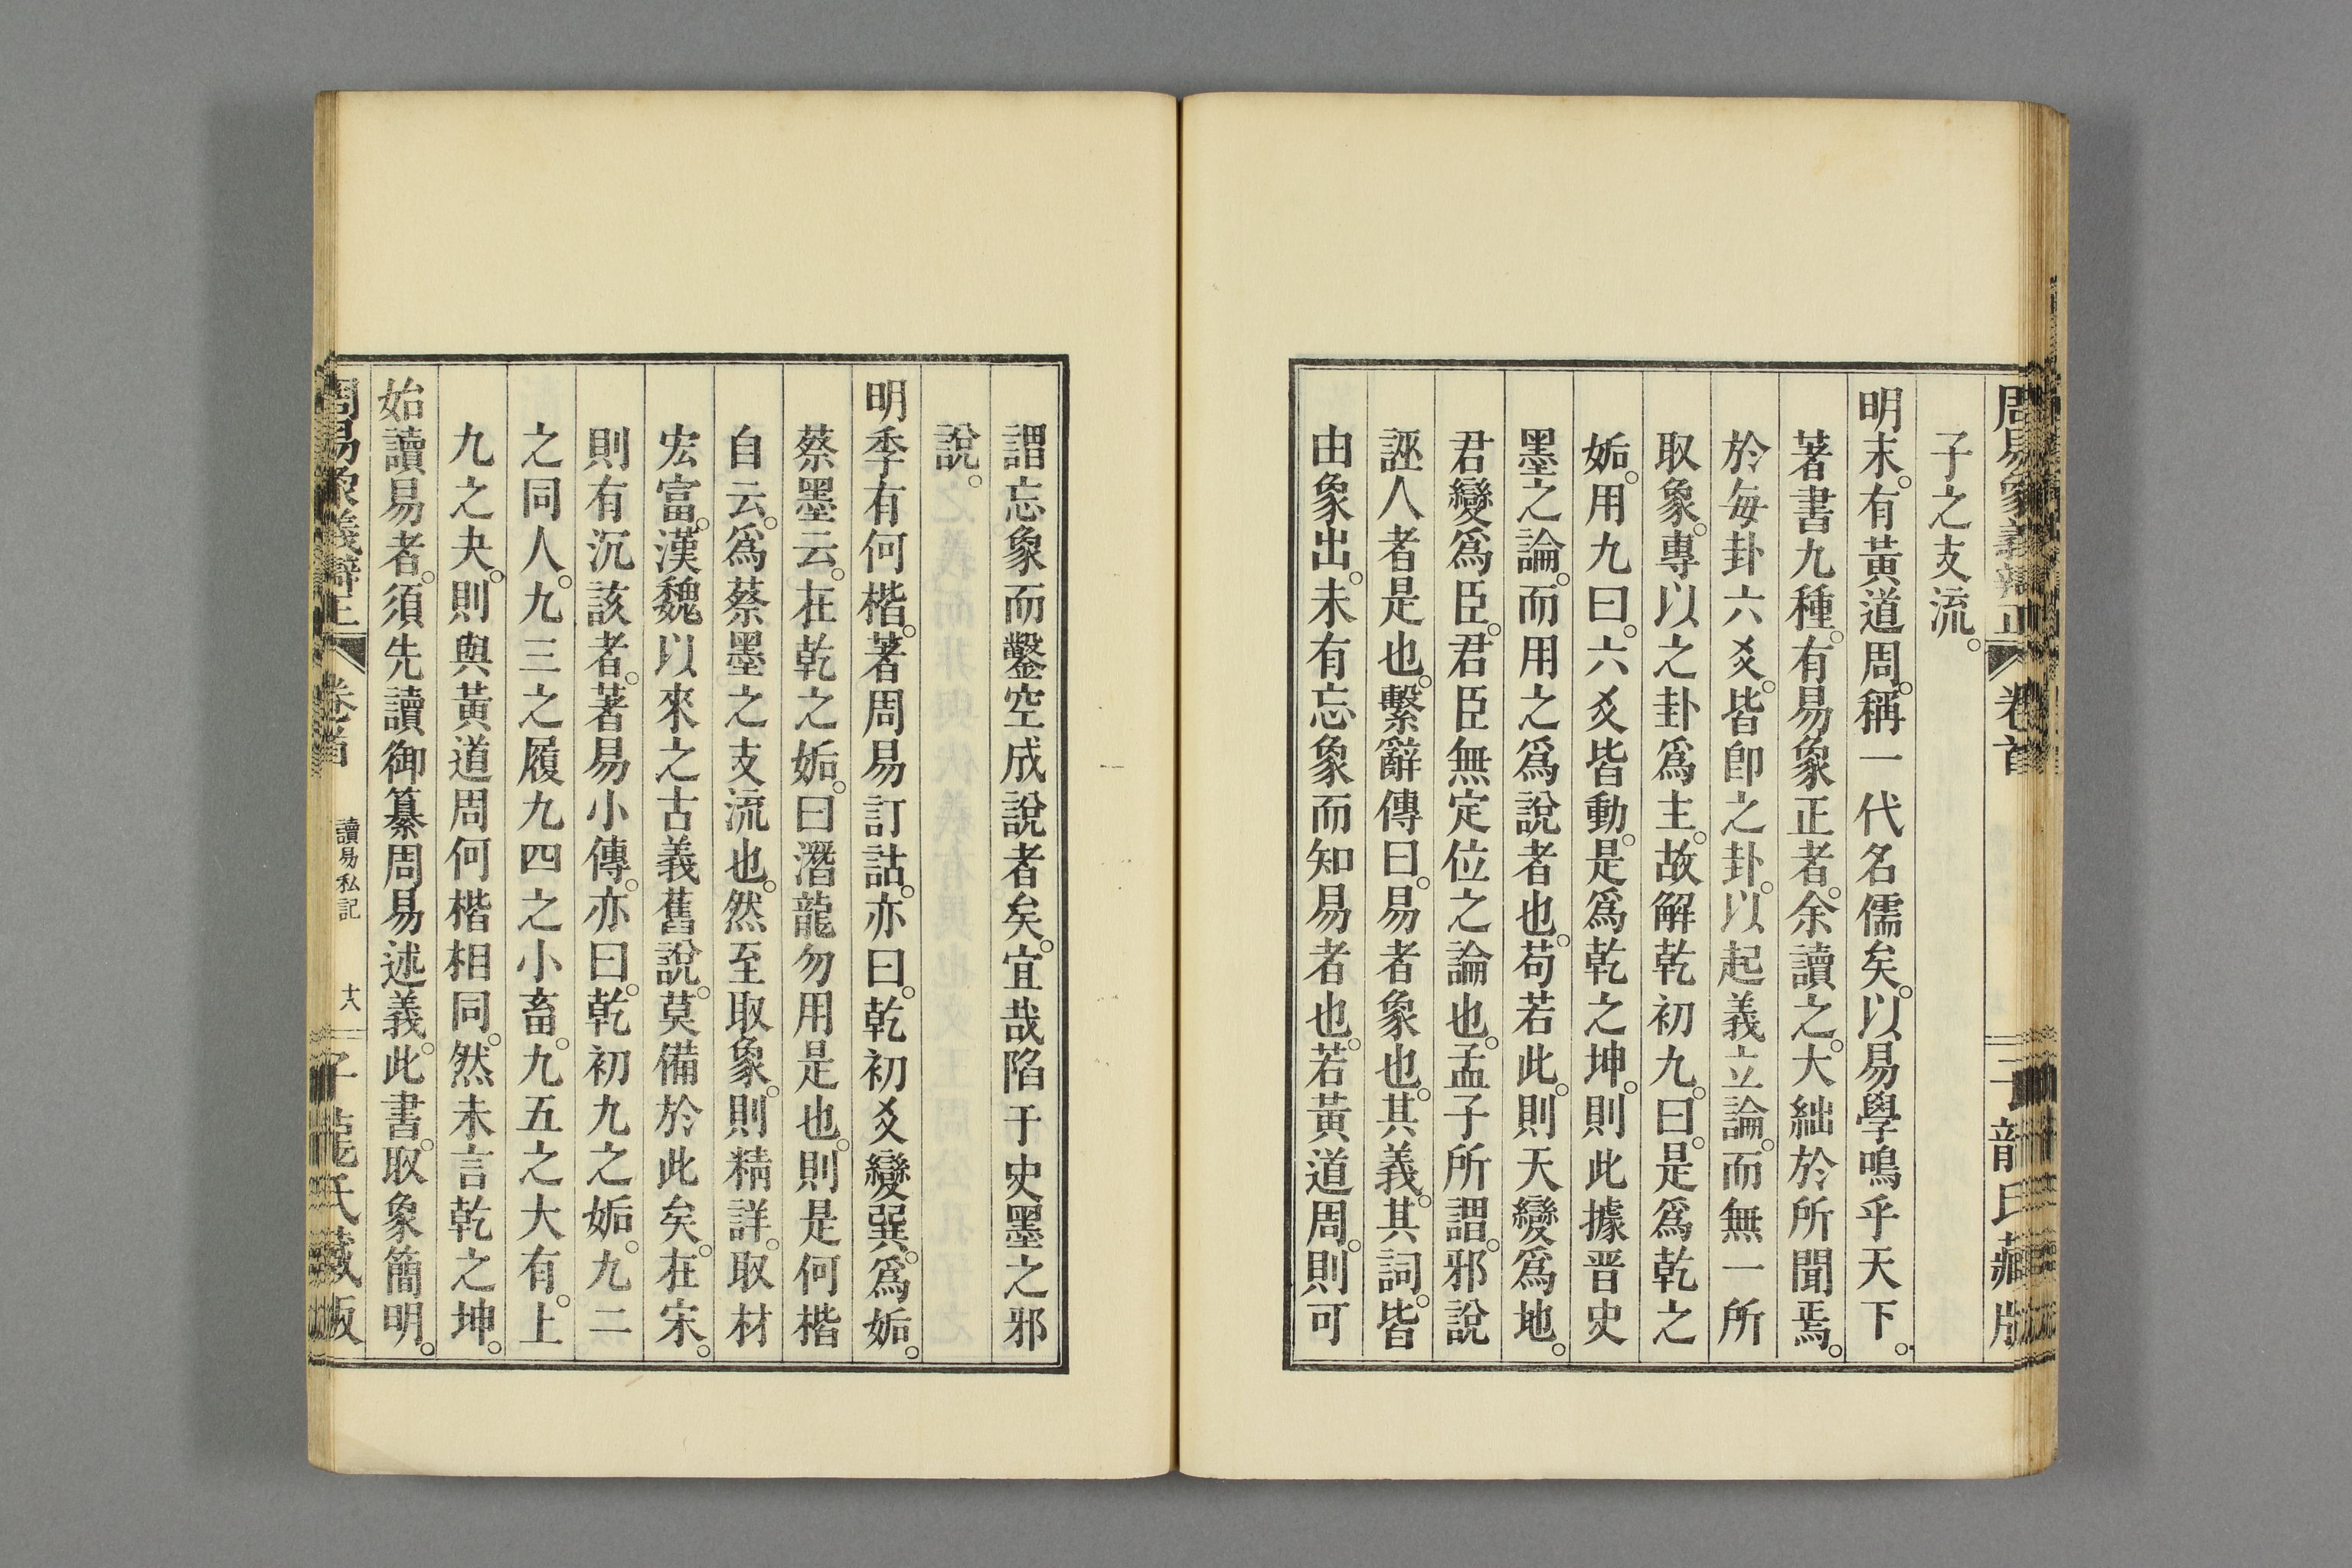 周易象義辯正 卷首 子龍氏藏版
子之支流。
明末。有黃道周。稱一代名儒矣。以易學鳴乎天下。
著書九種。有易象正者。余讀之。大絀於所聞焉。
於每卦六爻。皆卽之卦。以起義立論。而無一所
取象。專以之卦爲主。故解乾初九。曰。是爲乾之
姤。用九曰。六爻皆動。是爲乾之坤。則此據晋史
墨之論。而用之爲說者也。苟若此。則天變爲地。
君變爲臣。君臣無定位之論也。孟子所謂。邪說
誣人者是也。繫辭傳曰。易者象也。其義。其詞。皆
由象出。未有忘象而知易者也。若黃道周。則可
謂忘象而鑿空成說者矣。宜哉陷于史墨之邪
說。
明季有何楷。著周易訂詁。亦曰。乾初爻變巽。爲姤。
蔡墨云。在乾之姤。曰潛龍勿用是也。則是何楷
自云。爲蔡墨之支流也。然至取象。則精詳。取材
宏富。漢魏以來之古義舊說。莫備於此矣。在宋。
則有沉該者。著易小傳。亦曰。乾初九之姤。九二
之同人。九三之履九四之小畜。九五之大有。上
九之夬。則與黃道周何楷相同。然未言乾之坤。
始讀易者。須先讀御纂周易述義。此書。取象簡明。
周易象義辯正 卷首 讀易私記 十八 子龍氏藏版